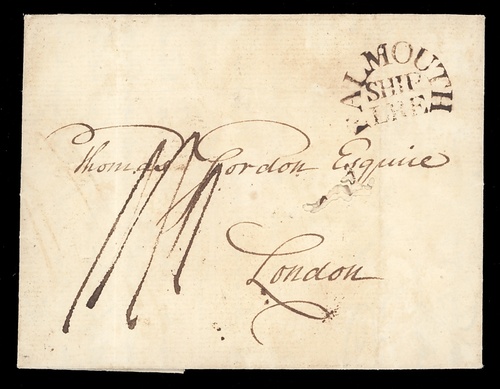 FALMOUTH
SHIP
LRE
Thomas Gordon Esquire
London